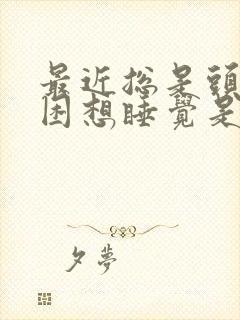 最近總是頭
困想睡覺是
夕夢